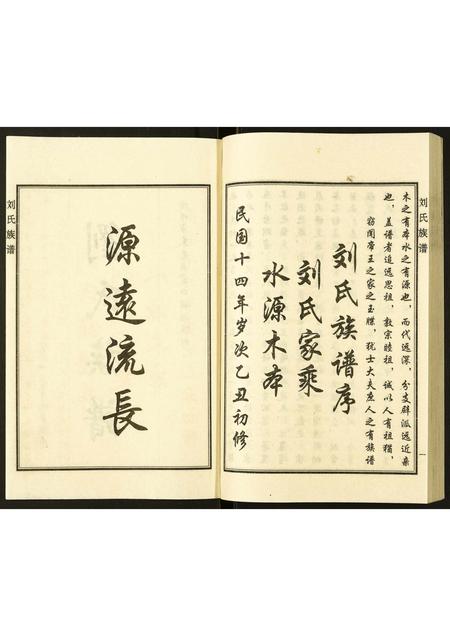 刘氏族谱
木之有本水之有源也，而代远派深，分支辟派远近亲
也，盖谱者追远思祖，敦宗睦祖，诚以人有祖犹，
窃闻帝王之家之玉牒，犹士大夫庶人之有族谱
刘氏族谱序
刘氏家乘
水源木本
民国十四年岁次乙丑初修
一
源遠流長
刘氏族谱